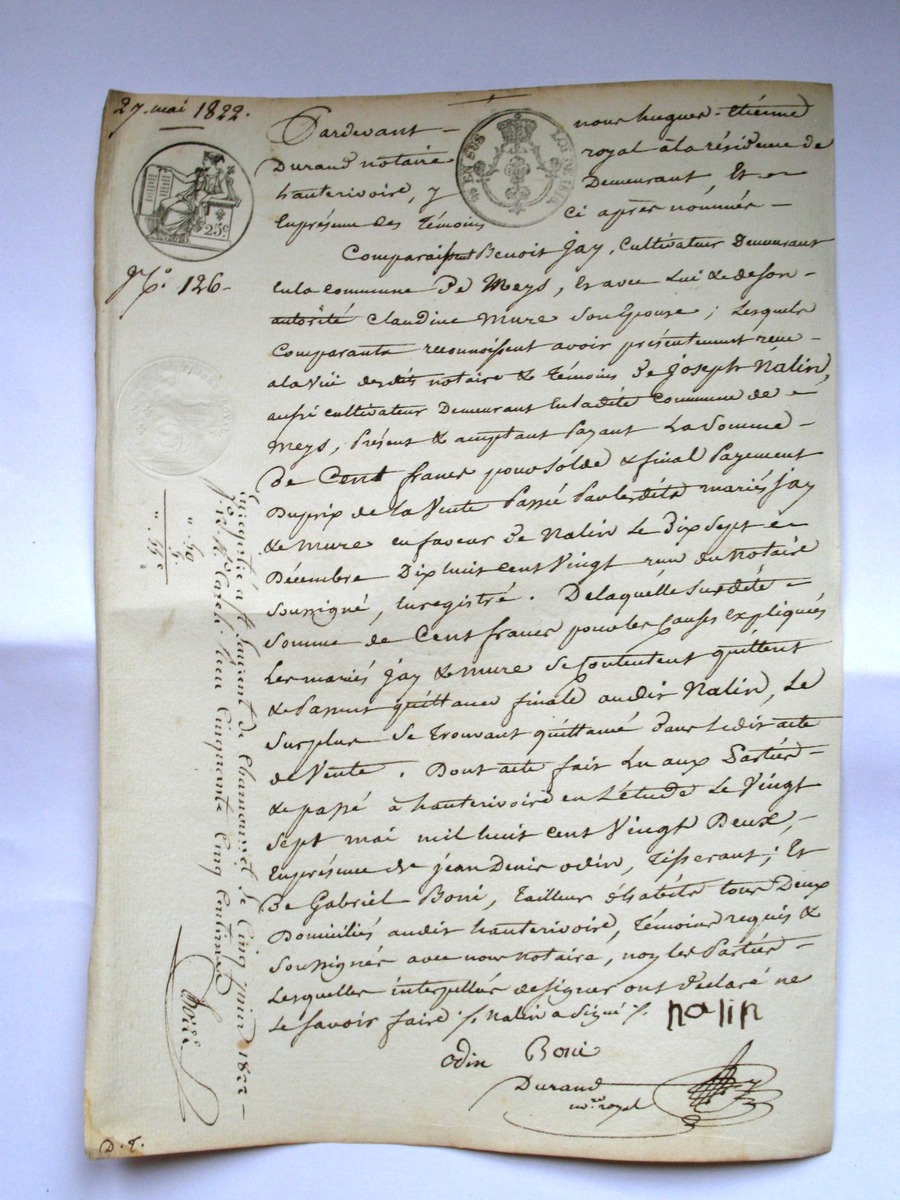 27. mai 1822.
Pardevant - nous hugues-étienne
Durand notaire royal à la résidence de
hauterivoire, y Demeurant, Et -
Enprésence des Témoins Ci après nommés -
EN SUS
25 c
Comparaissent Benoit Jay, Cultivateur Demeurant
En la commune De Meys, Et avec Lui & de son -
N.º 126-
autorité Claudine Mure Son Epouse ; Lesquels
Comparants reconnoissent avoir présentement reçu -
a la vüe desdits notaire & Témoins De joseph Nalin,
aussi cultivateur Demeurant En ladite Commune de -
Meys, Présent & acceptant Payant La Somme -
De Cent francs pour Solde & final Payement
Du prix de La Vente Passé Par lesdits mariés Jay
& Mure en faveur De Nalin Le Dix Sept -
Décembre Dix huit cent Vingt reçu du Notaire
Soussigné, Enregistré. De laquelle Surdité -
Somme de Cent francs pour les Causes Expliquées
Les mariés Jay & Mure Se Contentent quittent
& Passent quittance finale audit Nalin, Le
Surplus Se Trouvant quittancé Dans Ledit acte
de Vente. Dont acte fait Lu aux Parties -
& passé à hauterivoire en L'étude Le Vingt
Sept mai mil huit cent Vingt Deux, -
En présence de jean Denis odin, Tisserant ; Et
De Gabriel Boni, Tailleur d'habits tous Deux
Domiciliés audit hauterivoire, Témoins requis &
Soussignés avec nous Notaire, non les Parties -
Lesquelles interpellées de signer ont déclaré ne
Le Savoir faire ./. Nalin a Signé ./. nalin
odin Boni
Durand
no.re royal
Enregistré à St Laurent de Chamousset le Cinq juin 1822 -
Cinquante Cinq Centimes
" . 50
5.
" . 55 c
D. T.